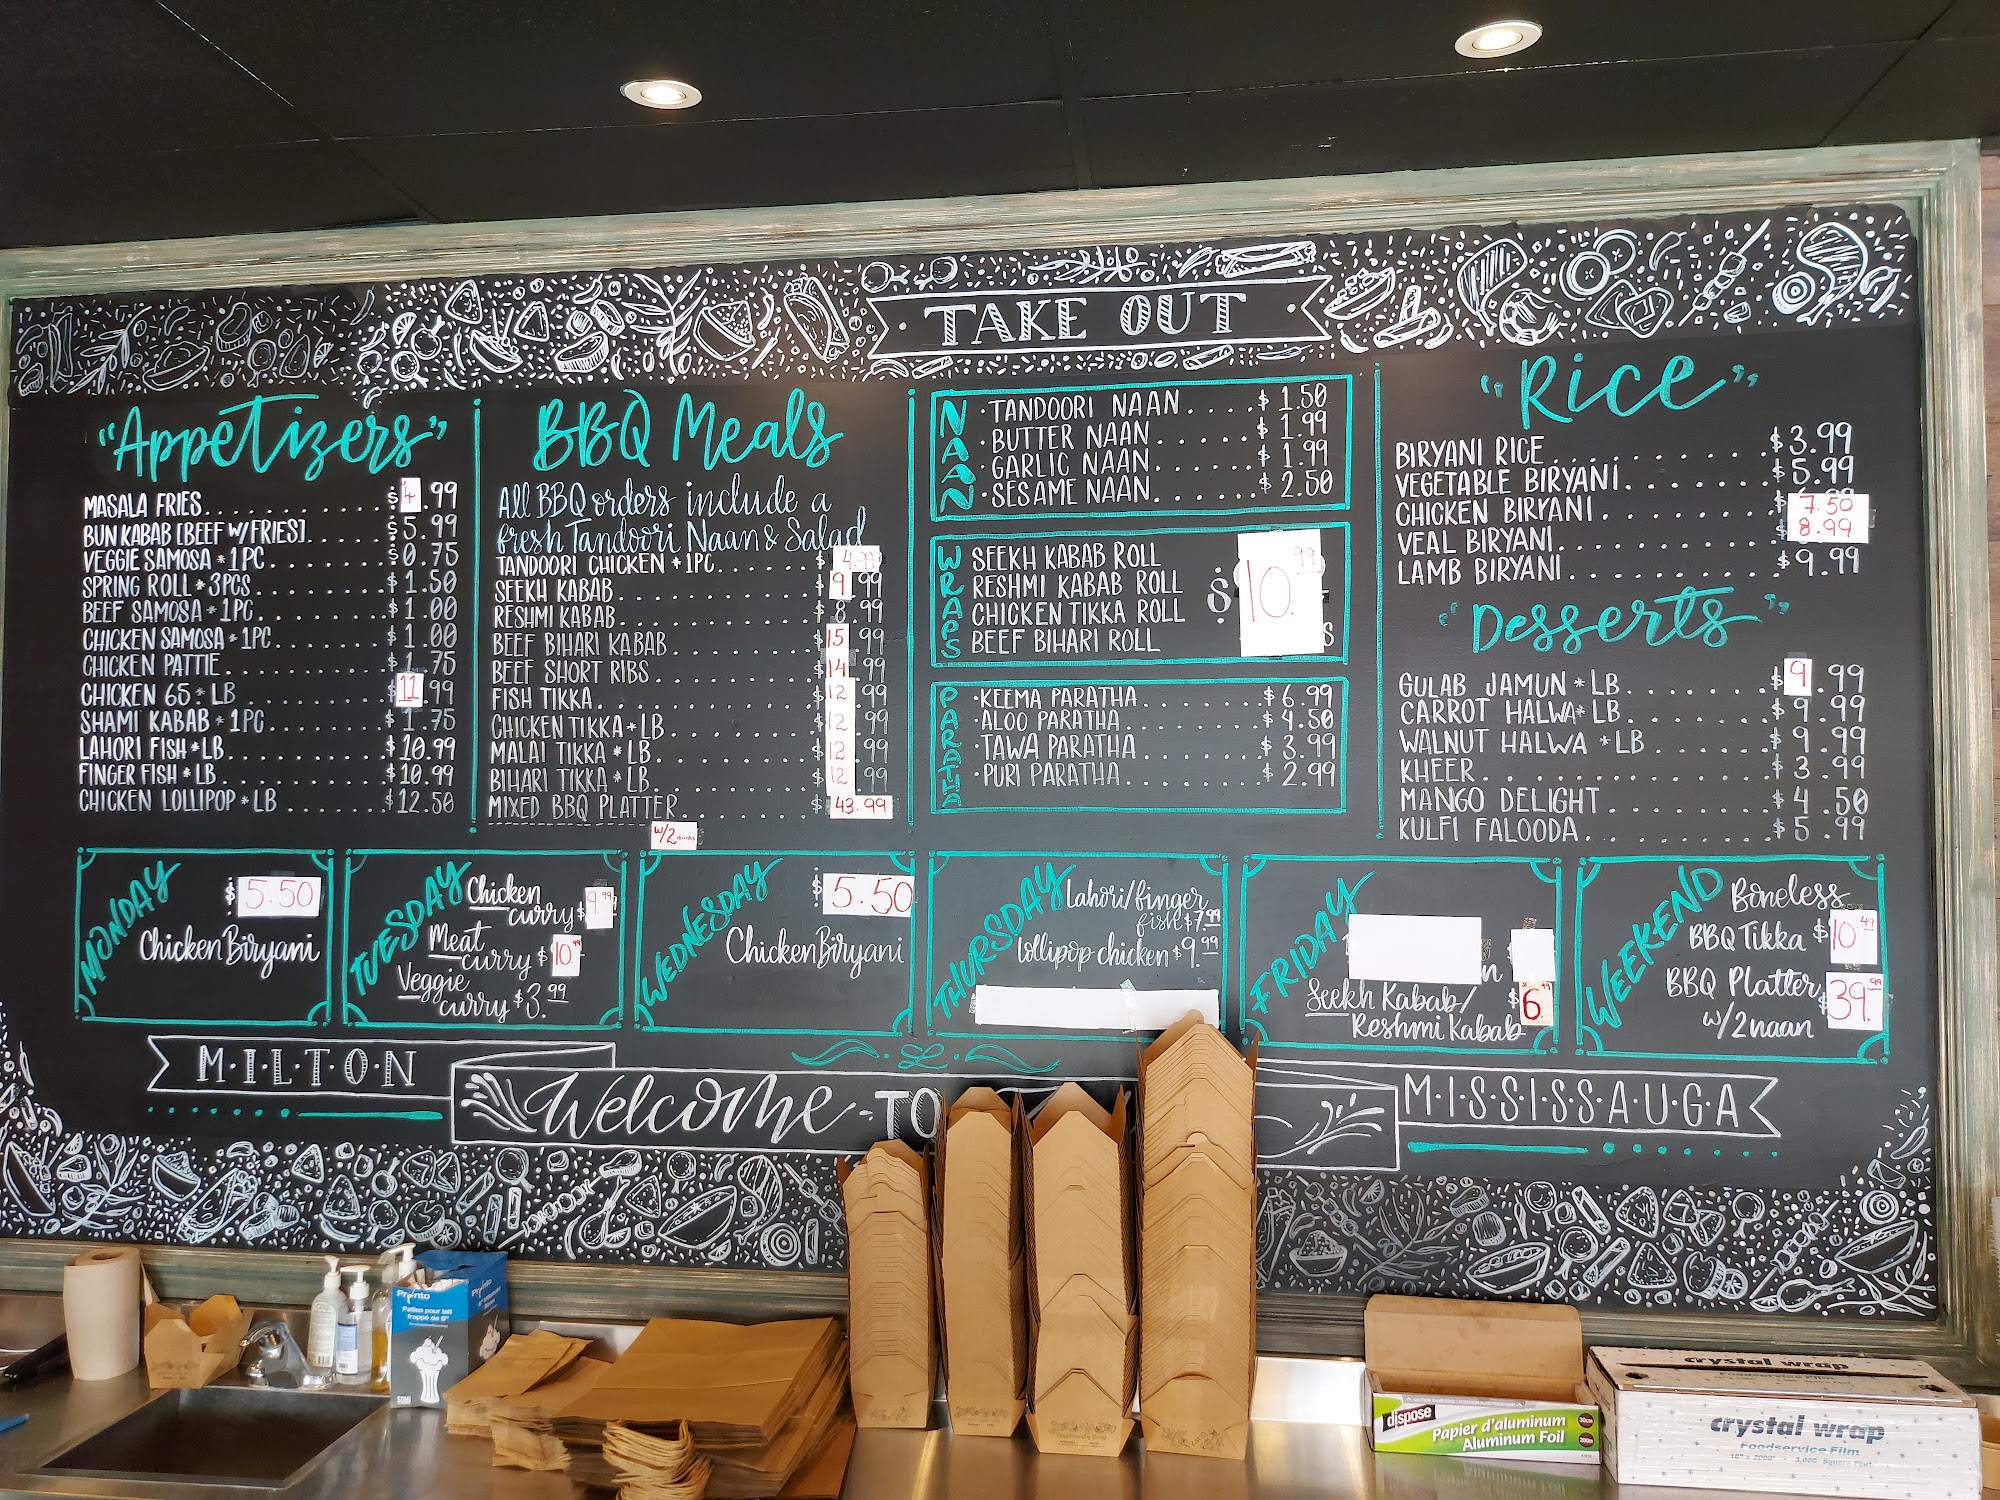 TAKE OUT
"Appetizers"
MASALA FRIES.............$4.99
BUN KABAB [BEEF W/FRIES].....$5.99
VEGGIE SAMOSA * 1PC........$0.75
SPRING ROLL * 3PCS.........$1.50
BEEF SAMOSA * 1PC.........$1.00
CHICKEN SAMOSA * 1PC.......$1.00
CHICKEN PATTIE............$1.75
CHICKEN 65 * LB...........$11.99
SHAMI KABAB * 1PC.........$1.75
LAHORI FISH * LB..........$10.99
FINGER FISH * LB..........$10.99
CHICKEN LOLLIPOP * LB.......$12.50
BBQ Meals
All BBQ orders include a
fresh Tandoori Naan & Salad
TANDOORI CHICKEN * 1PC......$4.99
SEEKH KABAB.............$9.99
RESHMI KABAB............$8.99
BEEF BIHARI KABAB.........$15.99
BEEF SHORT RIBS..........$14.99
FISH TIKKA..............$12.99
CHICKEN TIKKA * LB.........$12.99
MALAI TIKKA * LB..........$12.99
BIHARI TIKKA * LB..........$12.99
MIXED BBQ PLATTER........$43.99
W/2 drinks
NAAN
· TANDOORI NAAN....$1.50
· BUTTER NAAN......$1.99
· GARLIC NAAN......$1.99
· SESAME NAAN......$2.50
WRAPS
SEEKH KABAB ROLL
RESHMI KABAB ROLL
CHICKEN TIKKA ROLL
BEEF BIHARI ROLL
$10.99
PARATHA
· KEEMA PARATHA........$6.99
· ALOO PARATHA.........$4.50
· TAWA PARATHA........$3.99
· PURI PARATHA.........$2.99
"Rice"
BIRYANI RICE.............$3.99
VEGETABLE BIRYANI.........$5.99
CHICKEN BIRYANI..........7.50
VEAL BIRYANI............8.99
LAMB BIRYANI............$9.99
"Desserts"
GULAB JAMUN * LB........$9.99
CARROT HALWA * LB........$9.99
WALNUT HALWA * LB.......$9.99
KHEER................$3.99
MANGO DELIGHT..........$4.50
KULFI FALOODA...........$5.99
MONDAY
$5.50
Chicken Biryani
TUESDAY
Chicken
curry $9.99
Meat
curry $10.99
Veggie
curry $3.99
WEDNESDAY
$5.50
Chicken Biryani
THURSDAY
Lahori/finger
fish $7.99
lollipop chicken $9.99
FRIDAY
Seekh Kabab/
Reshmi Kabab
6.99
WEEKEND
Boneless
BBQ Tikka $10.49
BBQ Platter $39.99
w/2naan
M·I·L·T·O·N
Welcome - TO
M·I·S·S·I·S·S·A·U·G·A
Pronto
Pailles pour lait
frappé de 8"
dispose
Papier d'aluminum
Aluminum Foil
crystal wrap
crystal wrap
Foodservice Film
18" x 2000' · 3,000 Square Feet